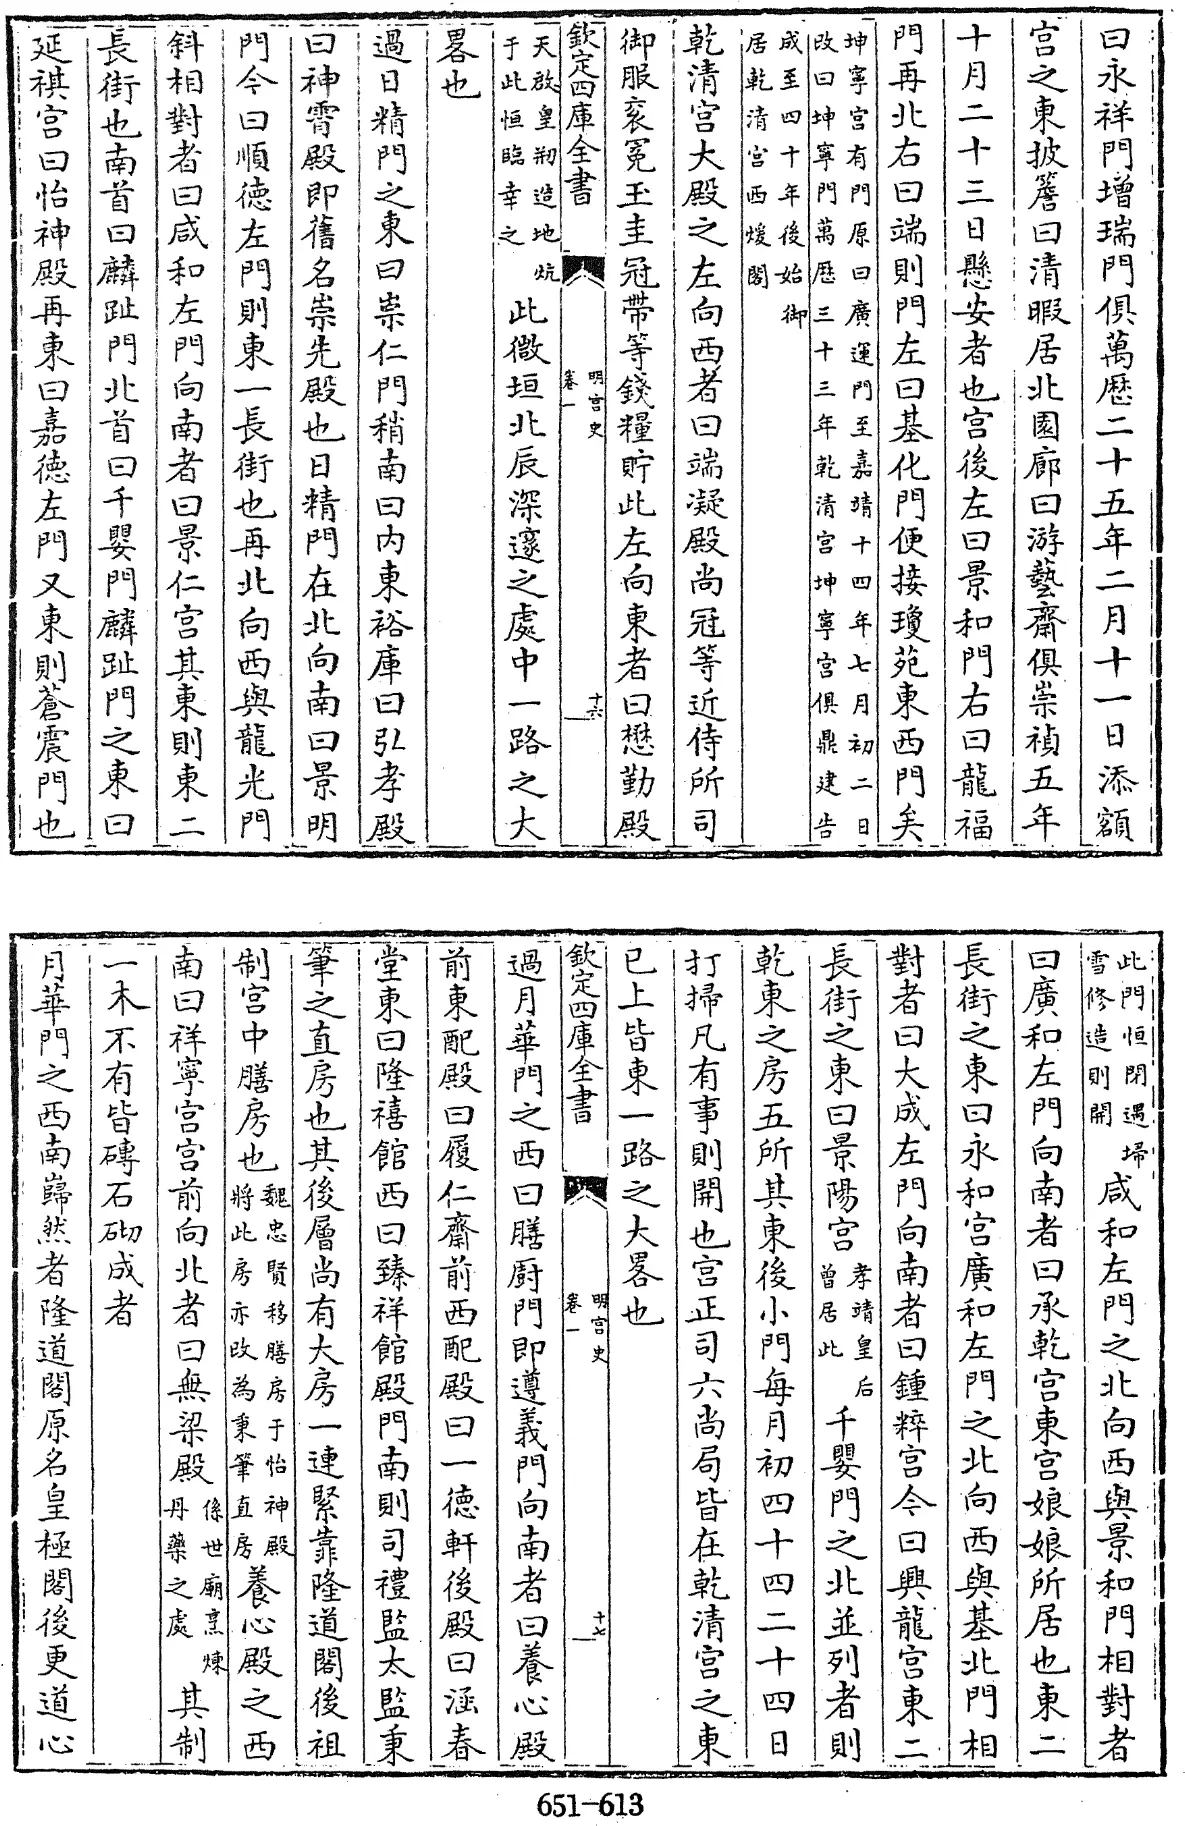 曰永祥門增瑞門俱萬歷二十五年二月十一日添額
宫之東披簷曰清暇居北園廊曰游藝齋俱崇禎五年
十月二十三日懸安者也宫後左曰景和門右曰龍福
門再北右曰端則門左曰基化門便接瓊苑東西門矣
坤寧宫有門原曰廣運門至嘉靖十四年七月初二日
改曰坤寧門萬歷三十三年乾清宫坤寧宫俱鼎建告
成至四十年後始御
居乾清宫西煖閣
乾清宫大殿之左向西者曰端凝殿尚冠等近侍所司
御服衮冕玉圭冠帶等錢糧貯此左向東者曰懋勤殿
欽定四庫全書 明宫史 卷一 十六
天啟皇剏造地炕
于此恒臨幸之
此微垣北辰深邃之處中一路之大
畧也
過日精門之東曰崇仁門稍南曰内東裕庫曰弘孝殿
曰神霄殿即舊名崇先殿也日精門在北向南曰景明
門今曰順德左門則東一長街也再北向西與龍光門
斜相對者曰咸和左門向南者曰景仁宫其東則東二
長街也南首曰麟趾門北首曰千嬰門麟趾門之東曰
延祺宫曰怡神殿再東曰嘉德左門又東則蒼震門也
此門恒閉遇埽
雪修造則開
咸和左門之北向西與景和門相對者
曰廣和左門向南者曰承乾宫東宫娘娘所居也東二
長街之東曰永和宫廣和左門之北向西與基北門相
對者曰大成左門向南者曰鍾粹宫今曰興龍宫東二
長街之東曰景陽宫
孝靖皇后
曾居此
千嬰門之北並列者則
乾東之房五所其東後小門每月初四十四二十四日
打掃凡有事則開也宫正司六尚局皆在乾清宫之東
已上皆東一路之大畧也
欽定四庫全書 明宫史 卷一 十七
過月華門之西曰膳厨門即遵義門向南者曰養心殿
前東配殿曰履仁齋前西配殿曰一德軒後殿曰涵春
堂東曰隆禧館西曰臻祥館殿門南則司禮監太監秉
筆之直房也其後層尚有大房一連緊靠隆道閣後祖
制宫中膳房也
魏忠賢移膳房于怡神殿
將此房亦改為秉筆直房
養心殿之西
南曰祥寧宫宫前向北者曰無梁殿
係世廟烹煉
丹藥之處
其制
一木不有皆磚石砌成者
月華門之西南巋然者隆道閣原名皇極閣後更道心
651-613